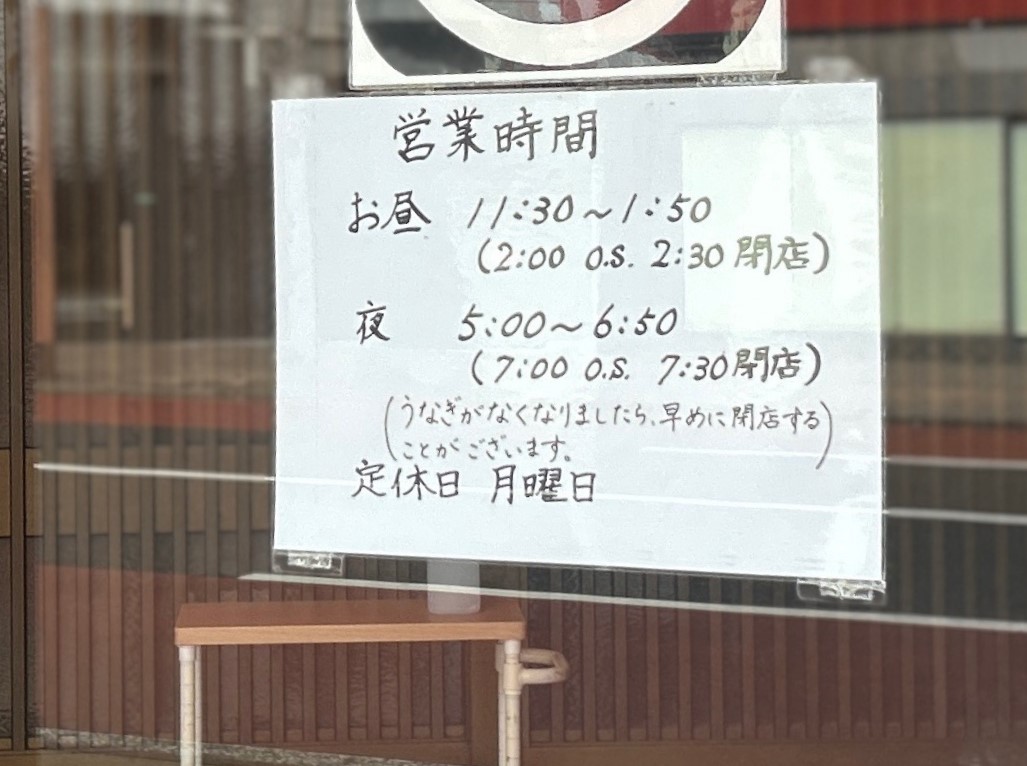 営業時間
お昼 11:30〜1:50
(2:00 O.S. 2:30 閉店)
夜 5:00〜6:50
(7:00 O.S. 7:30 閉店)
(うなぎがなくなりましたら、早めに閉店する
ことがございます。)
定休日 月曜日